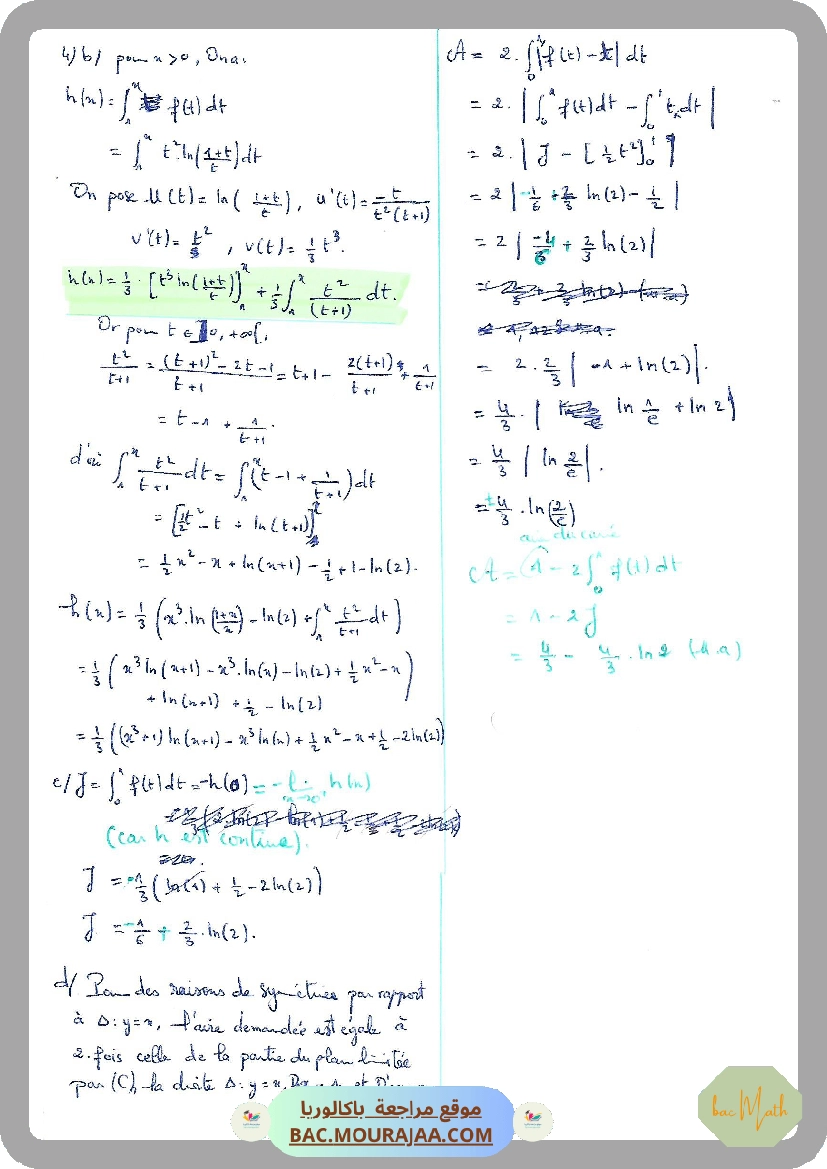 4/b/ pour x>0, On a.
h(x) = ∫₁ˣ f(t) dt
= ∫₁ˣ t² ln((1+t)/t) dt
On pose u(t) = ln((1+t)/t), u'(t) = -t/(t²(t+1))
v'(t) = t², v(t) = 1/3 t³.
h(x) = 1/3 · [t³ ln((1+t)/t)]₁ˣ + 1/3 ∫₁ˣ t²/(t+1) dt.
Or pour t ∈ ]0, +∞[,
t²/(t+1) = ((t+1)² - 2t - 1)/(t+1) = t+1 - 2(t+1)/(t+1) + 1/(t+1)
= t - 1 + 1/(t+1).
d'où ∫₁ˣ t²/(t+1) dt = ∫₁ˣ (t - 1 + 1/(t+1)) dt
= [1/2 t² - t + ln(t+1)]₁ˣ
= 1/2 x² - x + ln(x+1) - 1/2 + 1 - ln(2).
h(x) = 1/3 (x³ · ln((1+x)/x) - ln(2) + ∫₁ˣ t²/(t+1) dt)
= 1/3 (x³ ln(x+1) - x³ · ln(x) - ln(2) + 1/2 x² - x
+ ln(x+1) + 1/2 - ln(2))
= 1/3 ((x³+1) ln(x+1) - x³ ln(x) + 1/2 x² - x + 1/2 - 2ln(2))
c/ J = ∫₀¹ f(t) dt = -h(0) = - lim x→0⁺ h(x)
(car h est continue).
J = -1/3 (ln(1) + 1/2 - 2ln(2))
J = -1/6 + 2/3 · ln(2).
d/ Pour des raisons de symétries par rapport
à Δ: y=x, l'aire demandée est égale à
2 fois celle de la partie du plan limitée
par (C), la droite Δ: y=x, et
A = 2 · ∫₀¹ |f(t) - t| dt
= 2 · | ∫₀¹ f(t) dt - ∫₀¹ t dt |
= 2 · | J - [1/2 t²]₀¹ |
= 2 | -1/6 + 2/3 ln(2) - 1/2 |
= 2 | -4/6 + 2/3 ln(2) |
= 2 · 2/3 | -1 + ln(2) |.
= 4/3 · | ln 1/e + ln 2 |
= 4/3 | ln 2/e |.
= ± 4/3 · ln(2/e)
aire du carré
A = 1 - 2 ∫₀¹ f(t) dt
= 1 - 2J
= 4/3 - 4/3 · ln 2 (u.a)
موقع مراجعة باكالوريا
BAC.MOURAJAA.COM
bac Math